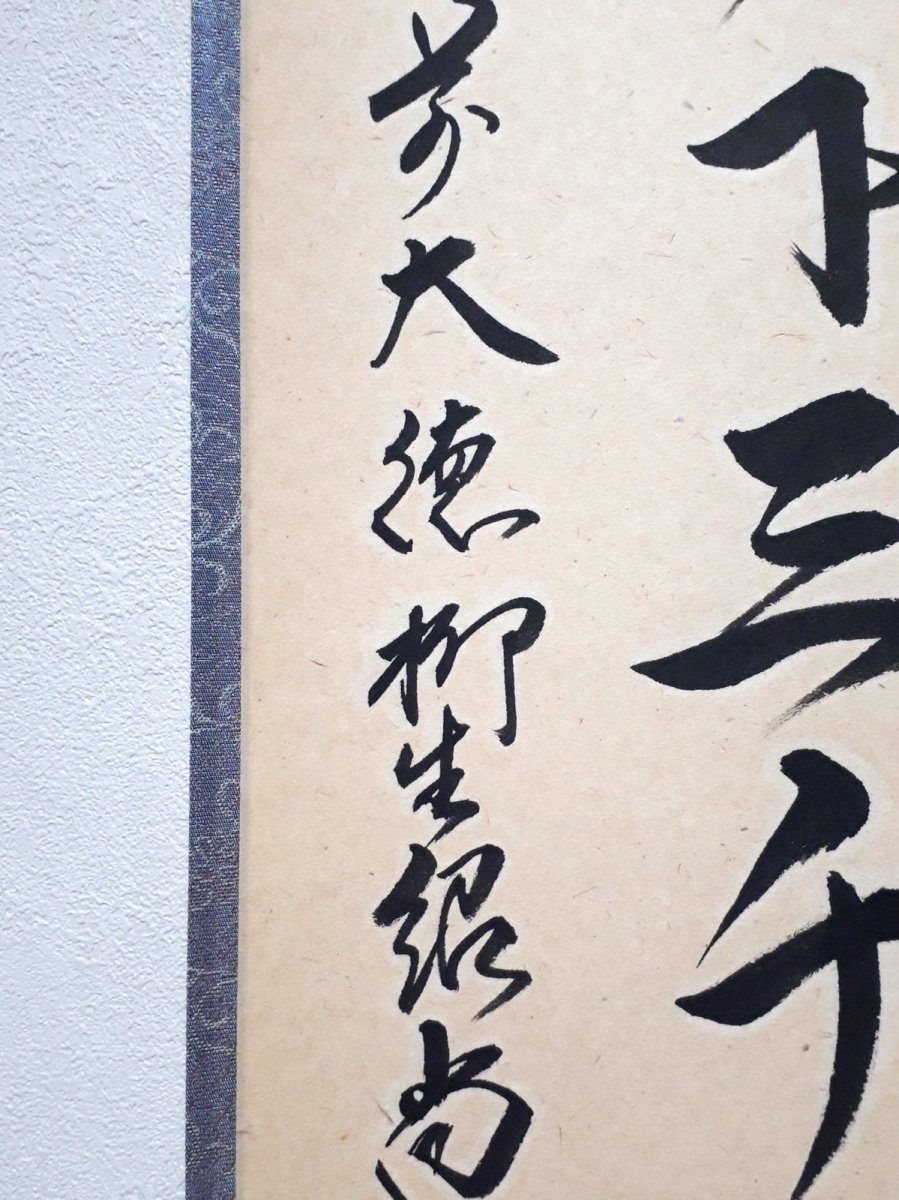 下三千
前大德柳生紹尚